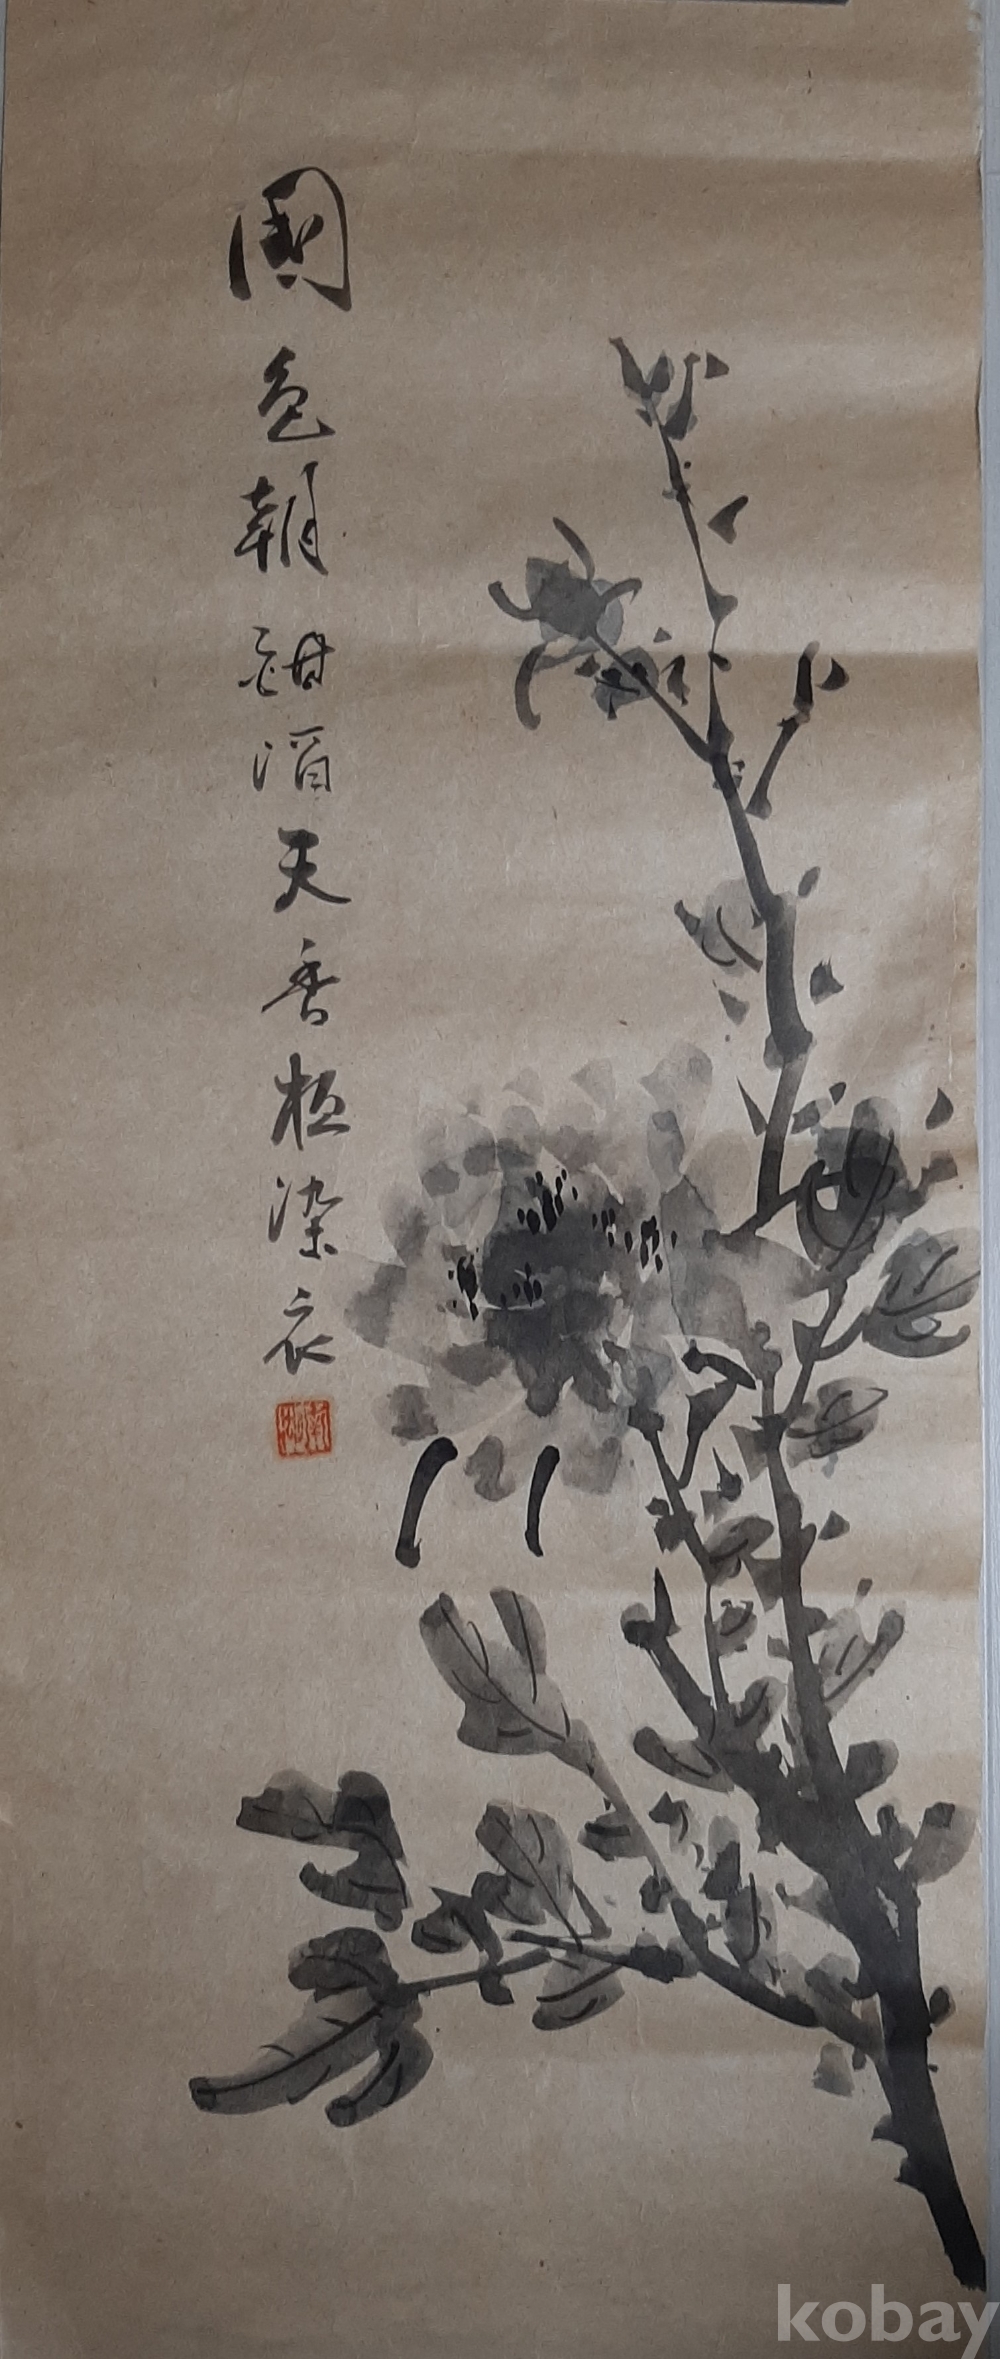 國色朝酣酒天香染衣
kobay